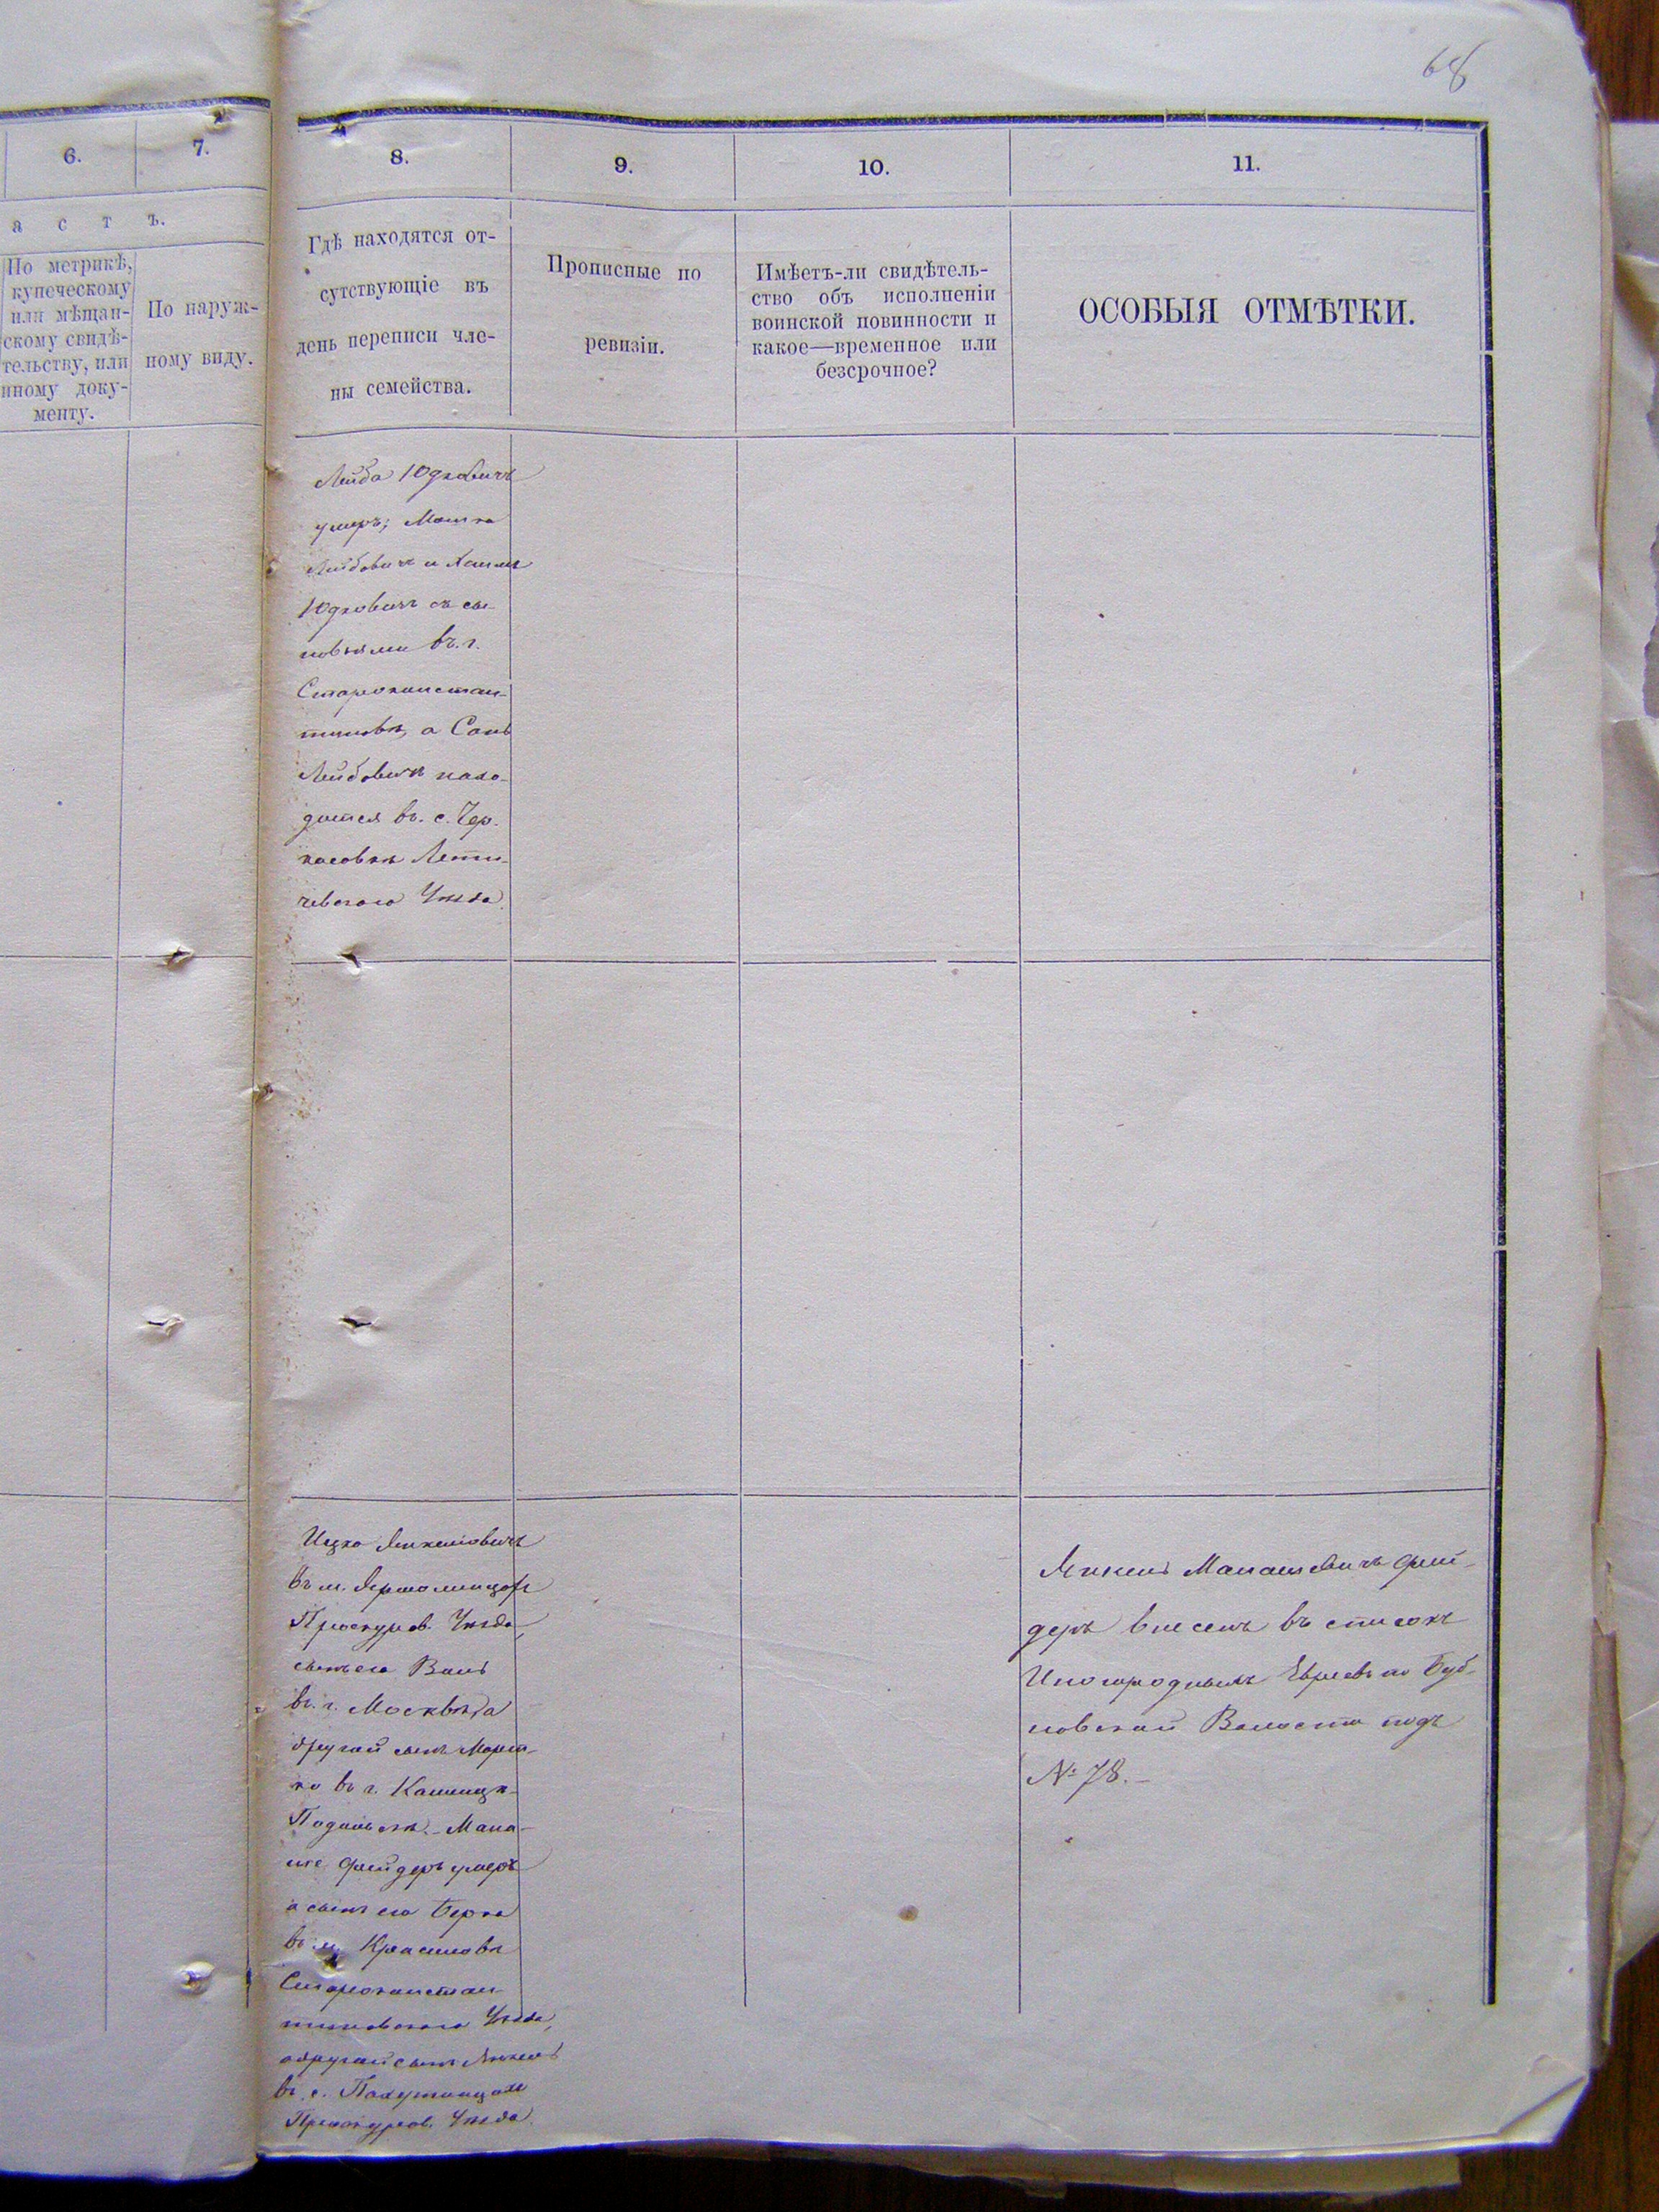 68
6.
7.
8.
9.
10.
11.
а с т ъ.
По метрикѣ,
купеческому
или мѣщан-
скому свидѣ-
тельству, или
иному доку-
менту.
По наруж-
ному виду.
Гдѣ находятся от-
сутствующіе въ
день переписи чле-
ны семейства.
Прописные по
ревизіи.
Имѣетъ-ли свидѣтель-
ство объ исполненіи
воинской повинности и
какое—временное или
безсрочное?
ОСОБЫЯ ОТМѢТКИ.
Лейба Юдковичъ
умеръ; Мошко
Лейбовичъ и
Юдковичъ съ сы-
новьями въ г.
Староконстан-
тиновѣ, а
Лейбовичъ нахо-
дится въ с. Чер-
касовкѣ Лети-
чевскаго Уѣзда
Ицко Янкелевичъ
въ м. Ярмолинцахъ
Проскуров. Уѣзда,
сынъ его Волъ
въ г. Москвѣ, а
другой сынъ Морт-
ко въ г. Каменцѣ-
Подольскѣ. Мана-
ше Фрейдеръ умеръ
а сынъ его Берко
въ м. Красиловѣ
Староконстан-
тиновскаго Уѣзда,
а другой сынъ Янкель
въ с. Пахутинцахъ
Проскуров. Уѣзда.
Янкель Манашевичъ Фрей-
деръ внесенъ въ списокъ
Иногороднымъ Евреевъ по
Волости подъ
№ 78.